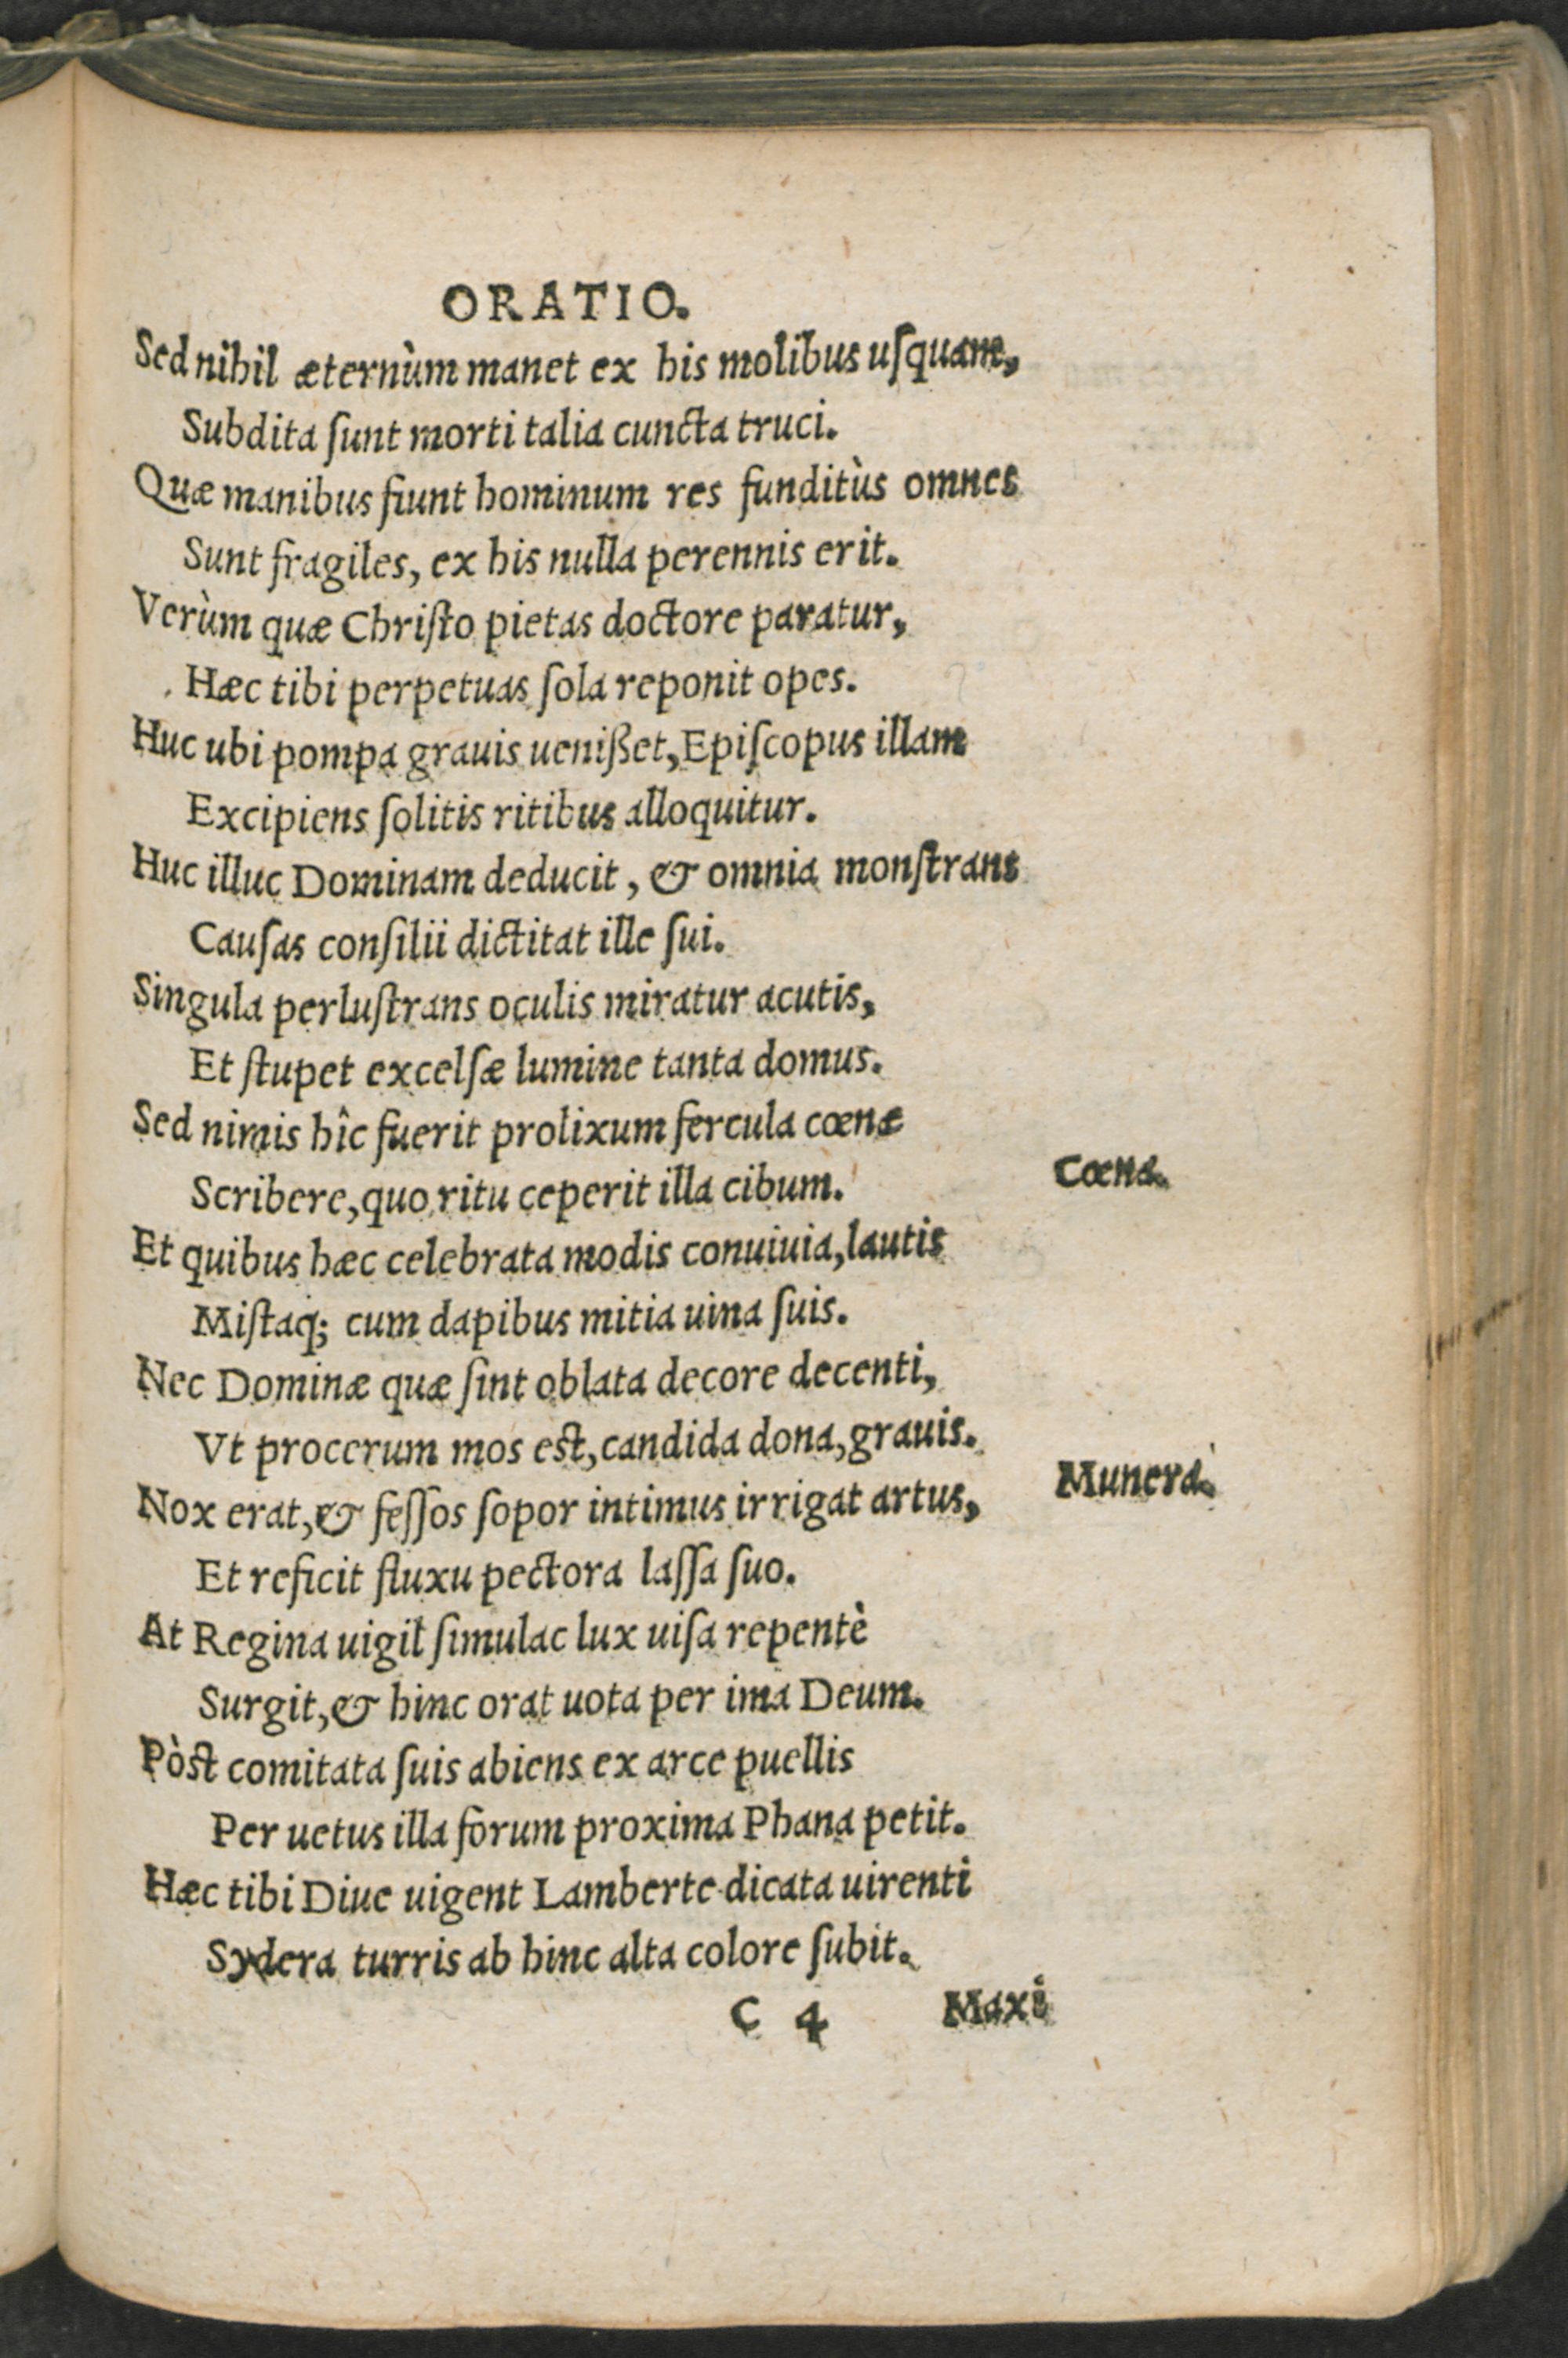 ORATIO.
Sed nihil æternùm manet ex his molibus uſquam,
Subdita ſunt morti talia cuncta truci.
Quæ manibus fiunt hominum res funditùs omnes
Sunt fragiles, ex his nulla perennis erit.
Verùm quæ Chriſto pietas doctore paratur,
Hæc tibi perpetuas ſola reponit opes.
Huc ubi pompa grauis ueniſſet, Epiſcopus illam
Excipiens ſolitis ritibus alloquitur.
Huc illuc Dominam deducit, & omnia monſtrans
Cauſas conſilii dictitat ille ſui.
Singula perluſtrans oculis miratur acutis,
Et ſtupet excelſæ lumine tanta domus.
Sed nimis hîc fuerit prolixum fercula cœnæ
Scribere, quo ritu ceperit illa cibum.
Cœna.
Et quibus hæc celebrata modis conuiuia, lautis
Miſtaq; cum dapibus mitia uina ſuis.
Nec Dominæ quæ ſint oblata decore decenti,
Vt procerum mos eſt, candida dona, grauis.
Munera.
Nox erat, & feſſos ſopor intimus irrigat artus,
Et reficit fluxu pectora laſſa ſuo.
At Regina uigil ſimulac lux uiſa repentè
Surgit, & hinc orat uota per ima Deum.
Pòſt comitata ſuis abiens ex arce puellis
Per uetus illa forum proxima Phana petit.
Hæc tibi Diue uigent Lamberte dicata uirenti
Sydera turris ab hinc alta colore ſubit.
C 4 Maxi